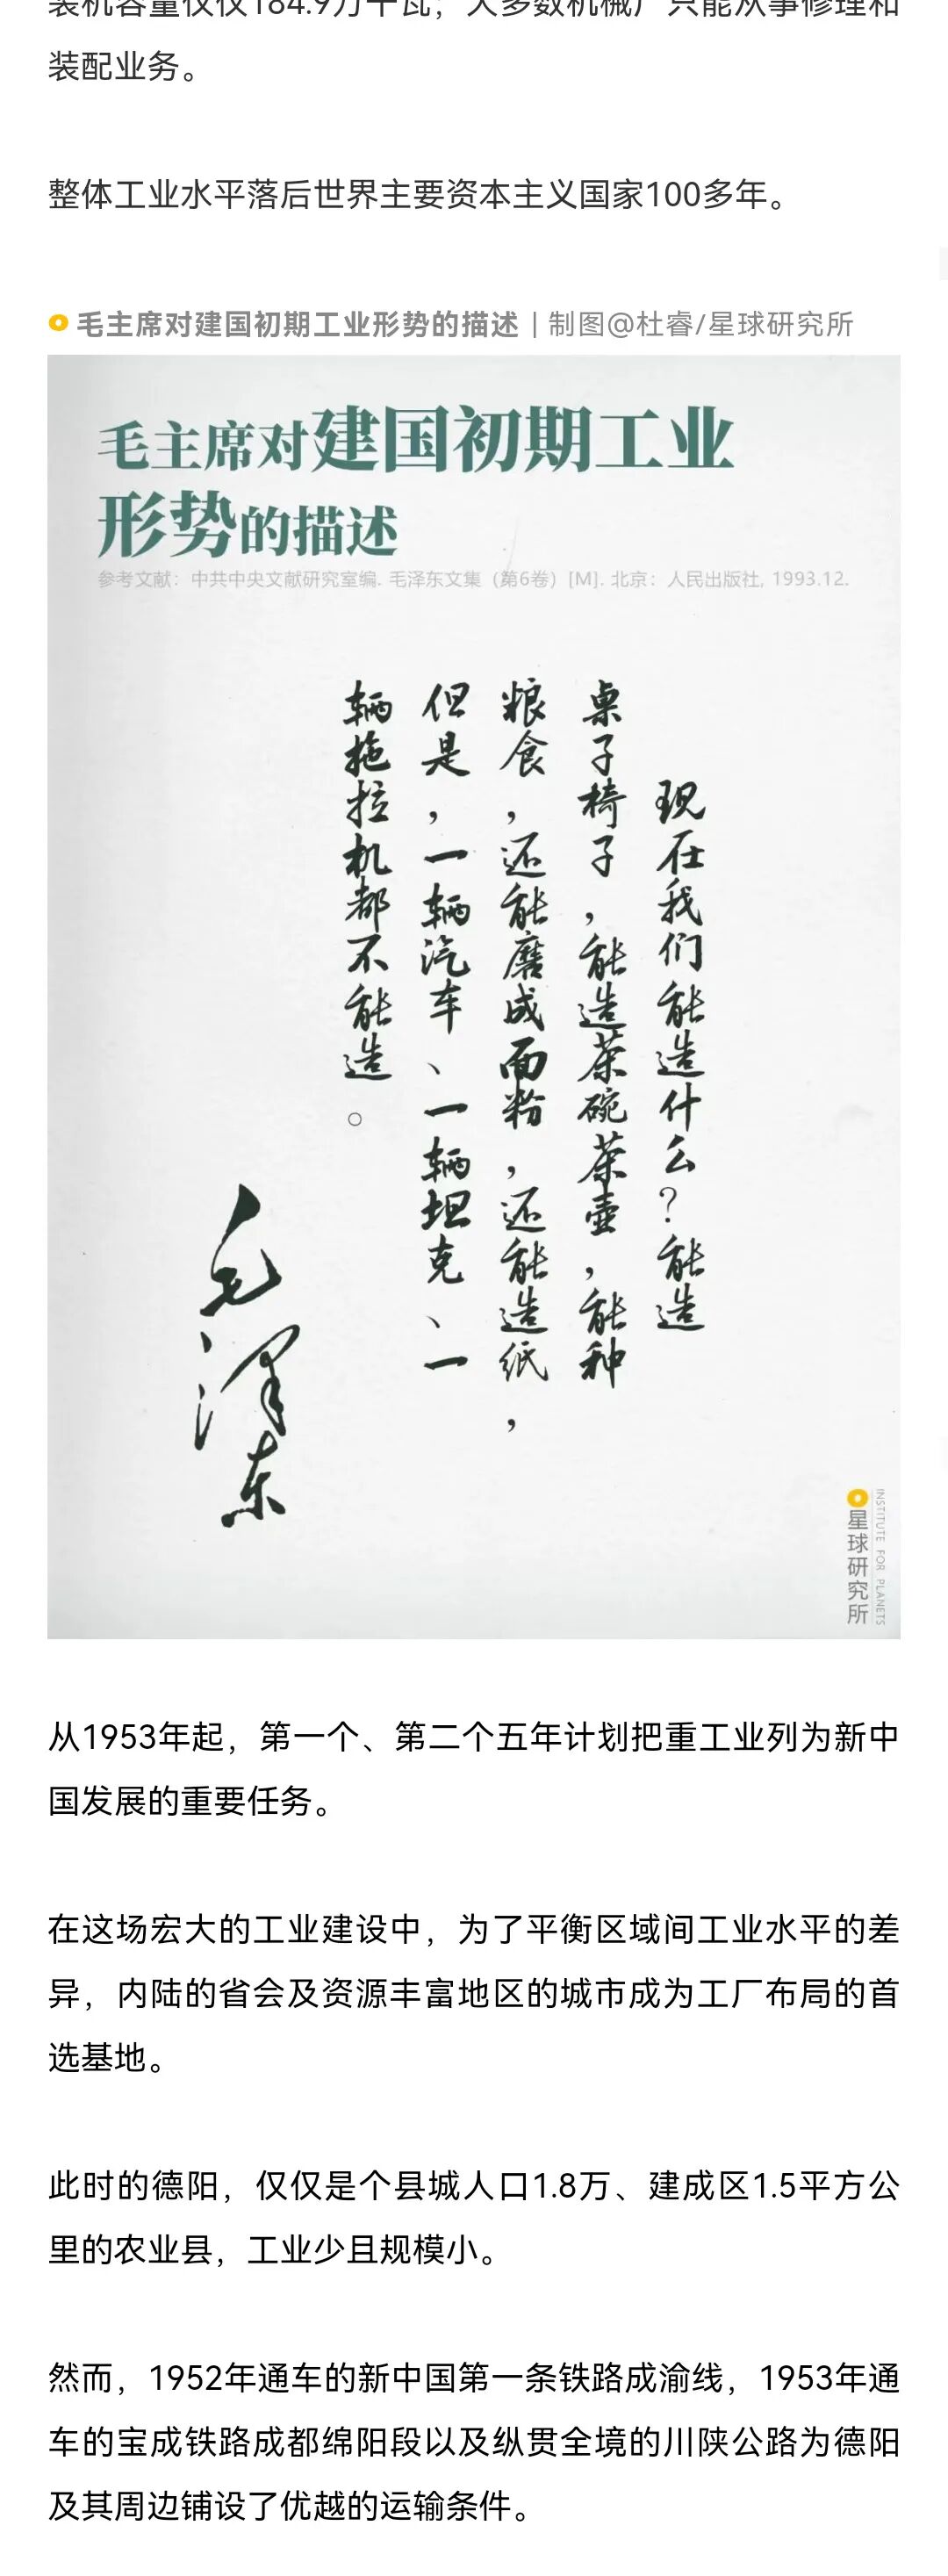 装机容量仅仅184.9万千瓦；大多数机械厂只能从事修理和
装配业务。
整体工业水平落后世界主要资本主义国家100多年。
毛主席对建国初期工业形势的描述 | 制图@杜睿/星球研究所
毛主席对建国初期工业
形势的描述
参考文献：中共中央文献研究室编. 毛泽东文集（第6卷）[M]. 北京：人民出版社, 1993.12.
现在我们能造什么？能造
桌子椅子，能造茶碗茶壶，能种
粮食，还能磨成面粉，还能造纸，
但是，一辆汽车、一辆坦克、一
辆拖拉机都不能造。
毛泽东
星球研究所
INSTITUTE FOR PLANETS
从1953年起，第一个、第二个五年计划把重工业列为新中
国发展的重要任务。
在这场宏大的工业建设中，为了平衡区域间工业水平的差
异，内陆的省会及资源丰富地区的城市成为工厂布局的首
选基地。
此时的德阳，仅仅是个县城人口1.8万、建成区1.5平方公
里的农业县，工业少且规模小。
然而，1952年通车的新中国第一条铁路成渝线，1953年通
车的宝成铁路成都绵阳段以及纵贯全境的川陕公路为德阳
及其周边铺设了优越的运输条件。